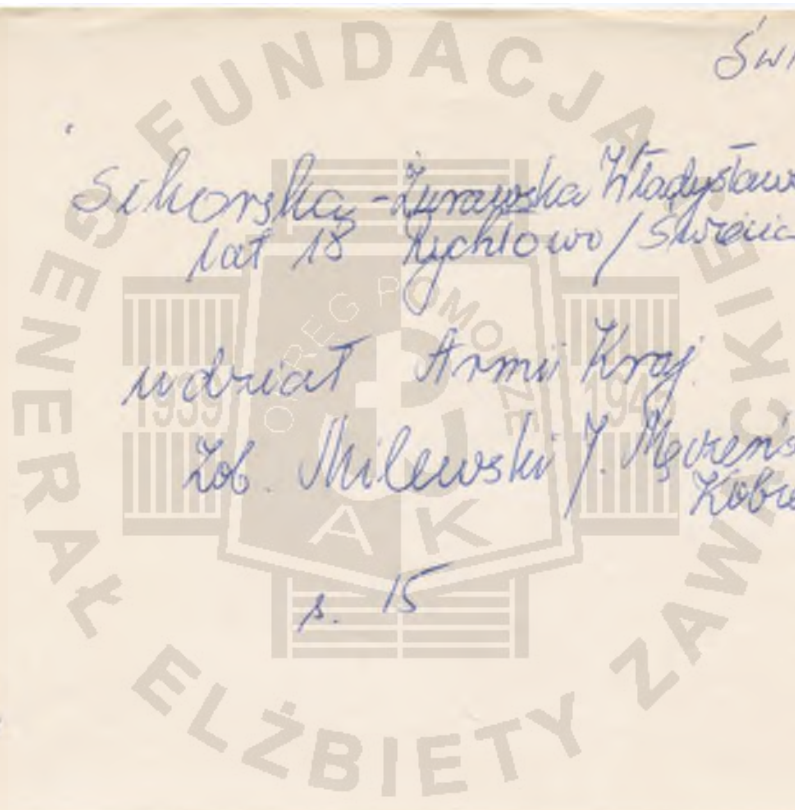 Świ
Sikorska-Żurawska Władysław
lat 18 Rychłowo / Świecic
udział Armii Kraj.
Zob. Milewski J. Męczeńs
Kobie
s. 15
FUNDACJA
GENERAŁ ELŻBIETY ZAWACKIEJ
OKRĘG POMORZE
1939 1945
AK